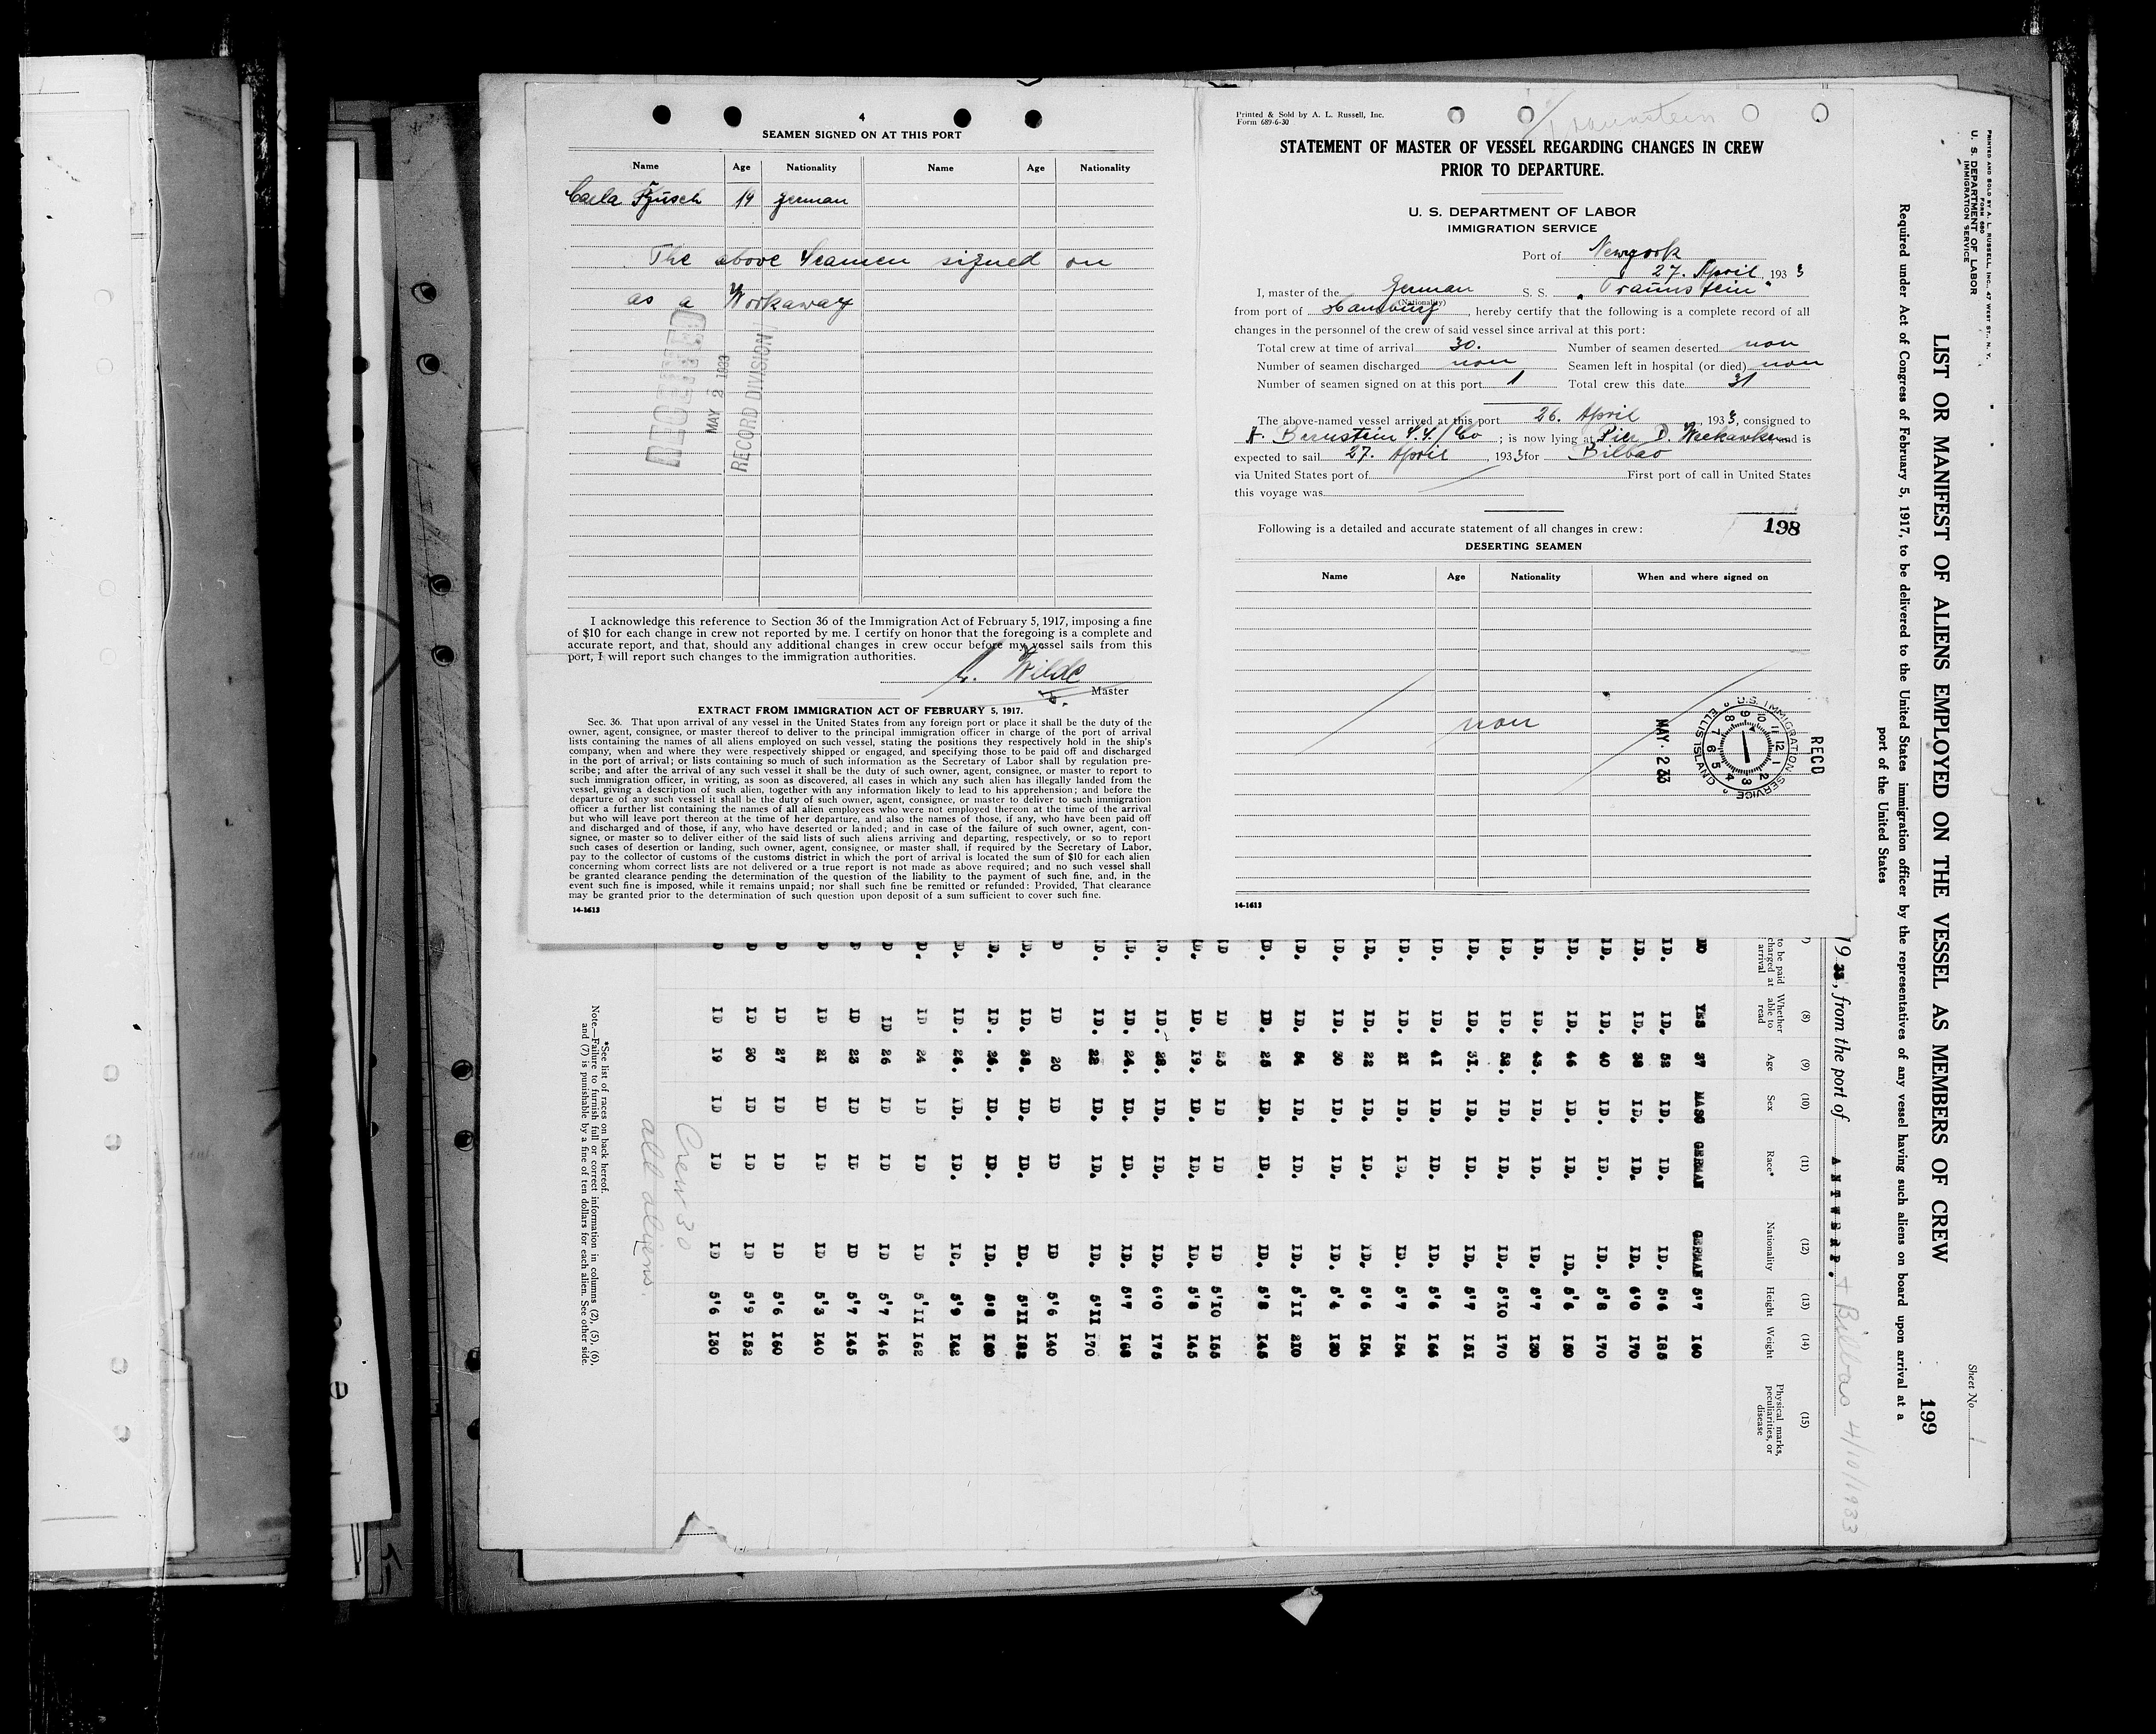 4
SEAMEN SIGNED ON AT THIS PORT
Name Age Nationality Name Age Nationality
19 German
The above Seamen signed on
as a Workaway
RECEIVED
MAY 2 1933
RECORD DIVISION
I acknowledge this reference to Section 36 of the Immigration Act of February 5, 1917, imposing a fine
of $10 for each change in crew not reported by me. I certify on honor that the foregoing is a complete and
accurate report, and that, should any additional changes in crew occur before my vessel sails from this
port, I will report such changes to the immigration authorities.
Wilde
Master
EXTRACT FROM IMMIGRATION ACT OF FEBRUARY 5, 1917.
Sec. 36. That upon arrival of any vessel in the United States from any foreign port or place it shall be the duty of the
owner, agent, consignee, or master thereof to deliver to the principal immigration officer in charge of the port of arrival
lists containing the names of all aliens employed on such vessel, stating the positions they respectively hold in the ship's
company, when and where they were respectively shipped or engaged, and specifying those to be paid off and discharged
in the port of arrival; or lists containing so much of such information as the Secretary of Labor shall by regulation pre-
scribe; and after the arrival of any such vessel it shall be the duty of such owner, agent, consignee, or master to report to
such immigration officer, in writing, as soon as discovered, all cases in which any such alien has illegally landed from the
vessel, giving a description of such alien, together with any information likely to lead to his apprehension; and before the
departure of any such vessel it shall be the duty of such owner, agent, consignee, or master to deliver to such immigration
officer a further list containing the names of all alien employees who were not employed thereon at the time of the arrival
but who will leave port thereon at the time of her departure, and also the names of those, if any, who have been paid off
and discharged and of those, if any, who have deserted or landed; and in case of the failure of such owner, agent, con-
signee, or master so to deliver either of the said lists of such aliens arriving and departing, respectively, or so to report
such cases of desertion or landing, such owner, agent, consignee, or master shall, if required by the Secretary of Labor,
pay to the collector of customs of the customs district in which the port of arrival is located the sum of $10 for each alien
concerning whom correct lists are not delivered or a true report is not made as above required; and no such vessel shall
be granted clearance pending the determination of the question of the liability to the payment of such fine, and, in the
event such fine is imposed, while it remains unpaid; nor shall such fine be remitted or refunded: Provided, That clearance
may be granted prior to the determination of such question upon deposit of a sum sufficient to cover such fine.
14-1613
Printed & Sold by A. L. Russell, Inc.
Form 689-6-30
Traunstein
STATEMENT OF MASTER OF VESSEL REGARDING CHANGES IN CREW
PRIOR TO DEPARTURE.
U. S. DEPARTMENT OF LABOR
IMMIGRATION SERVICE
Port of Newyork
27. April, 1933
I, master of the German S. S. "Traunstein"
(Nationality)
from port of Hamburg, hereby certify that the following is a complete record of all
changes in the personnel of the crew of said vessel since arrival at this port:
Total crew at time of arrival 30. Number of seamen deserted non
Number of seamen discharged non Seamen left in hospital (or died) non
Number of seamen signed on at this port 1 Total crew this date 31
The above-named vessel arrived at this port 26. April, 1933, consigned to
A. Bernstein S.S. Co; is now lying at Pier D. Weehawken and is
expected to sail 27. April, 1933 for Bilbao
via United States port of First port of call in United States
this voyage was
Following is a detailed and accurate statement of all changes in crew:
198
DESERTING SEAMEN
Name Age Nationality When and where signed on
non
RECD
U.S. IMMIGRATION SERVICE ELLIS ISLAND
MAY 2 33
14-1613
PRINTED AND SOLD BY A. L. RUSSELL, INC., 47 WEST ST., N. Y.
FORM 680
U. S. DEPARTMENT OF LABOR
IMMIGRATION SERVICE
Sheet No. 1
LIST OR MANIFEST OF ALIENS EMPLOYED ON THE VESSEL AS MEMBERS OF CREW
199
Required under Act of Congress of February 5, 1917, to be delivered to the United States immigration officer by the representatives of any vessel having such aliens on board upon arrival at a
port of the United States
1933, from the port of ANTWERP. + Bilbao 4/10/1933
to be paid charged at arrival (8) Whether able to read (9) Age (10) Sex (11) Race* (12) Nationality (13) Height (14) Weight (15) Physical marks, peculiarities, or disease
NO YES 37 MASC GERMAN GERMAN 5'7 160
ID. ID. 52 ID. ID. ID. 5'6 185
ID. ID. 38 ID. ID. ID. 6'0 170
ID. ID. 40 ID. ID. ID. 5'8 170
ID. ID. 46 ID. ID. ID. 5'6 150
ID. ID. 43. ID. ID. ID. 5'7 130
ID. ID. 52. ID. ID. ID. 5'10 170
ID. ID. 31. ID. ID. ID. 5'7 151
ID. ID. 41 ID. ID. ID. 5'6 166
ID. ID. 21 ID. ID. ID. 5'7 154
ID. ID. 22 ID. ID. ID. 5'6 154
ID. ID. 30 ID. ID. ID. 5'4 120
ID. ID. 54 ID. ID. ID. 5'11 210
ID. ID. 25 ID. ID. ID. 5'8 145
ID ID 23 ID ID ID 5'10 155
ID. ID. 19. ID. ID. ID. 5'8 145
ID. ID. 28. ID. ID. ID. 6'0 175
ID. ID. 24. ID. ID. ID. 5'7 168
ID. ID. 22 ID. ID. ID. 5'11 170
ID ID 20 ID ID 5'6 140
ID. ID. 38. ID. ID. ID. 5'11 182
ID. ID. 24. ID. ID. ID. 5'8 160
ID. ID. 26. ID. ID. ID. 5'9 142
ID. ID 24 ID ID ID 5'11 162
ID ID 26 ID ID ID 5'7 146
ID ID 23 ID ID ID 5'7 145
ID ID 21 ID ID ID 5'3 140
ID ID 27 ID ID ID 5'6 160
ID ID 30 ID ID ID 5'9 152
ID ID 19 ID ID ID 5'6 130
Crew 30
all aliens.
*See list of races on back hereof.
Note.—Failure to furnish full or correct information in columns (2), (5), (6),
and (7) is punishable by a fine of ten dollars for each alien. See other side.